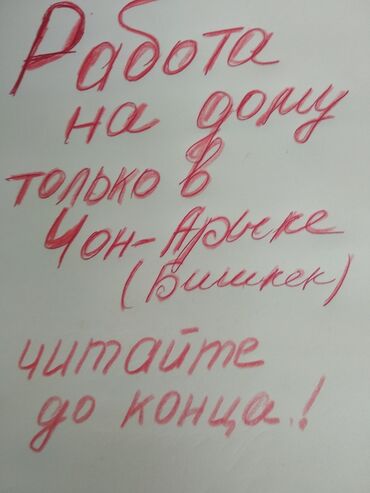 Работа
на дому
только в
Чон-Арыке
(Бишкек)
читайте
до конца.!